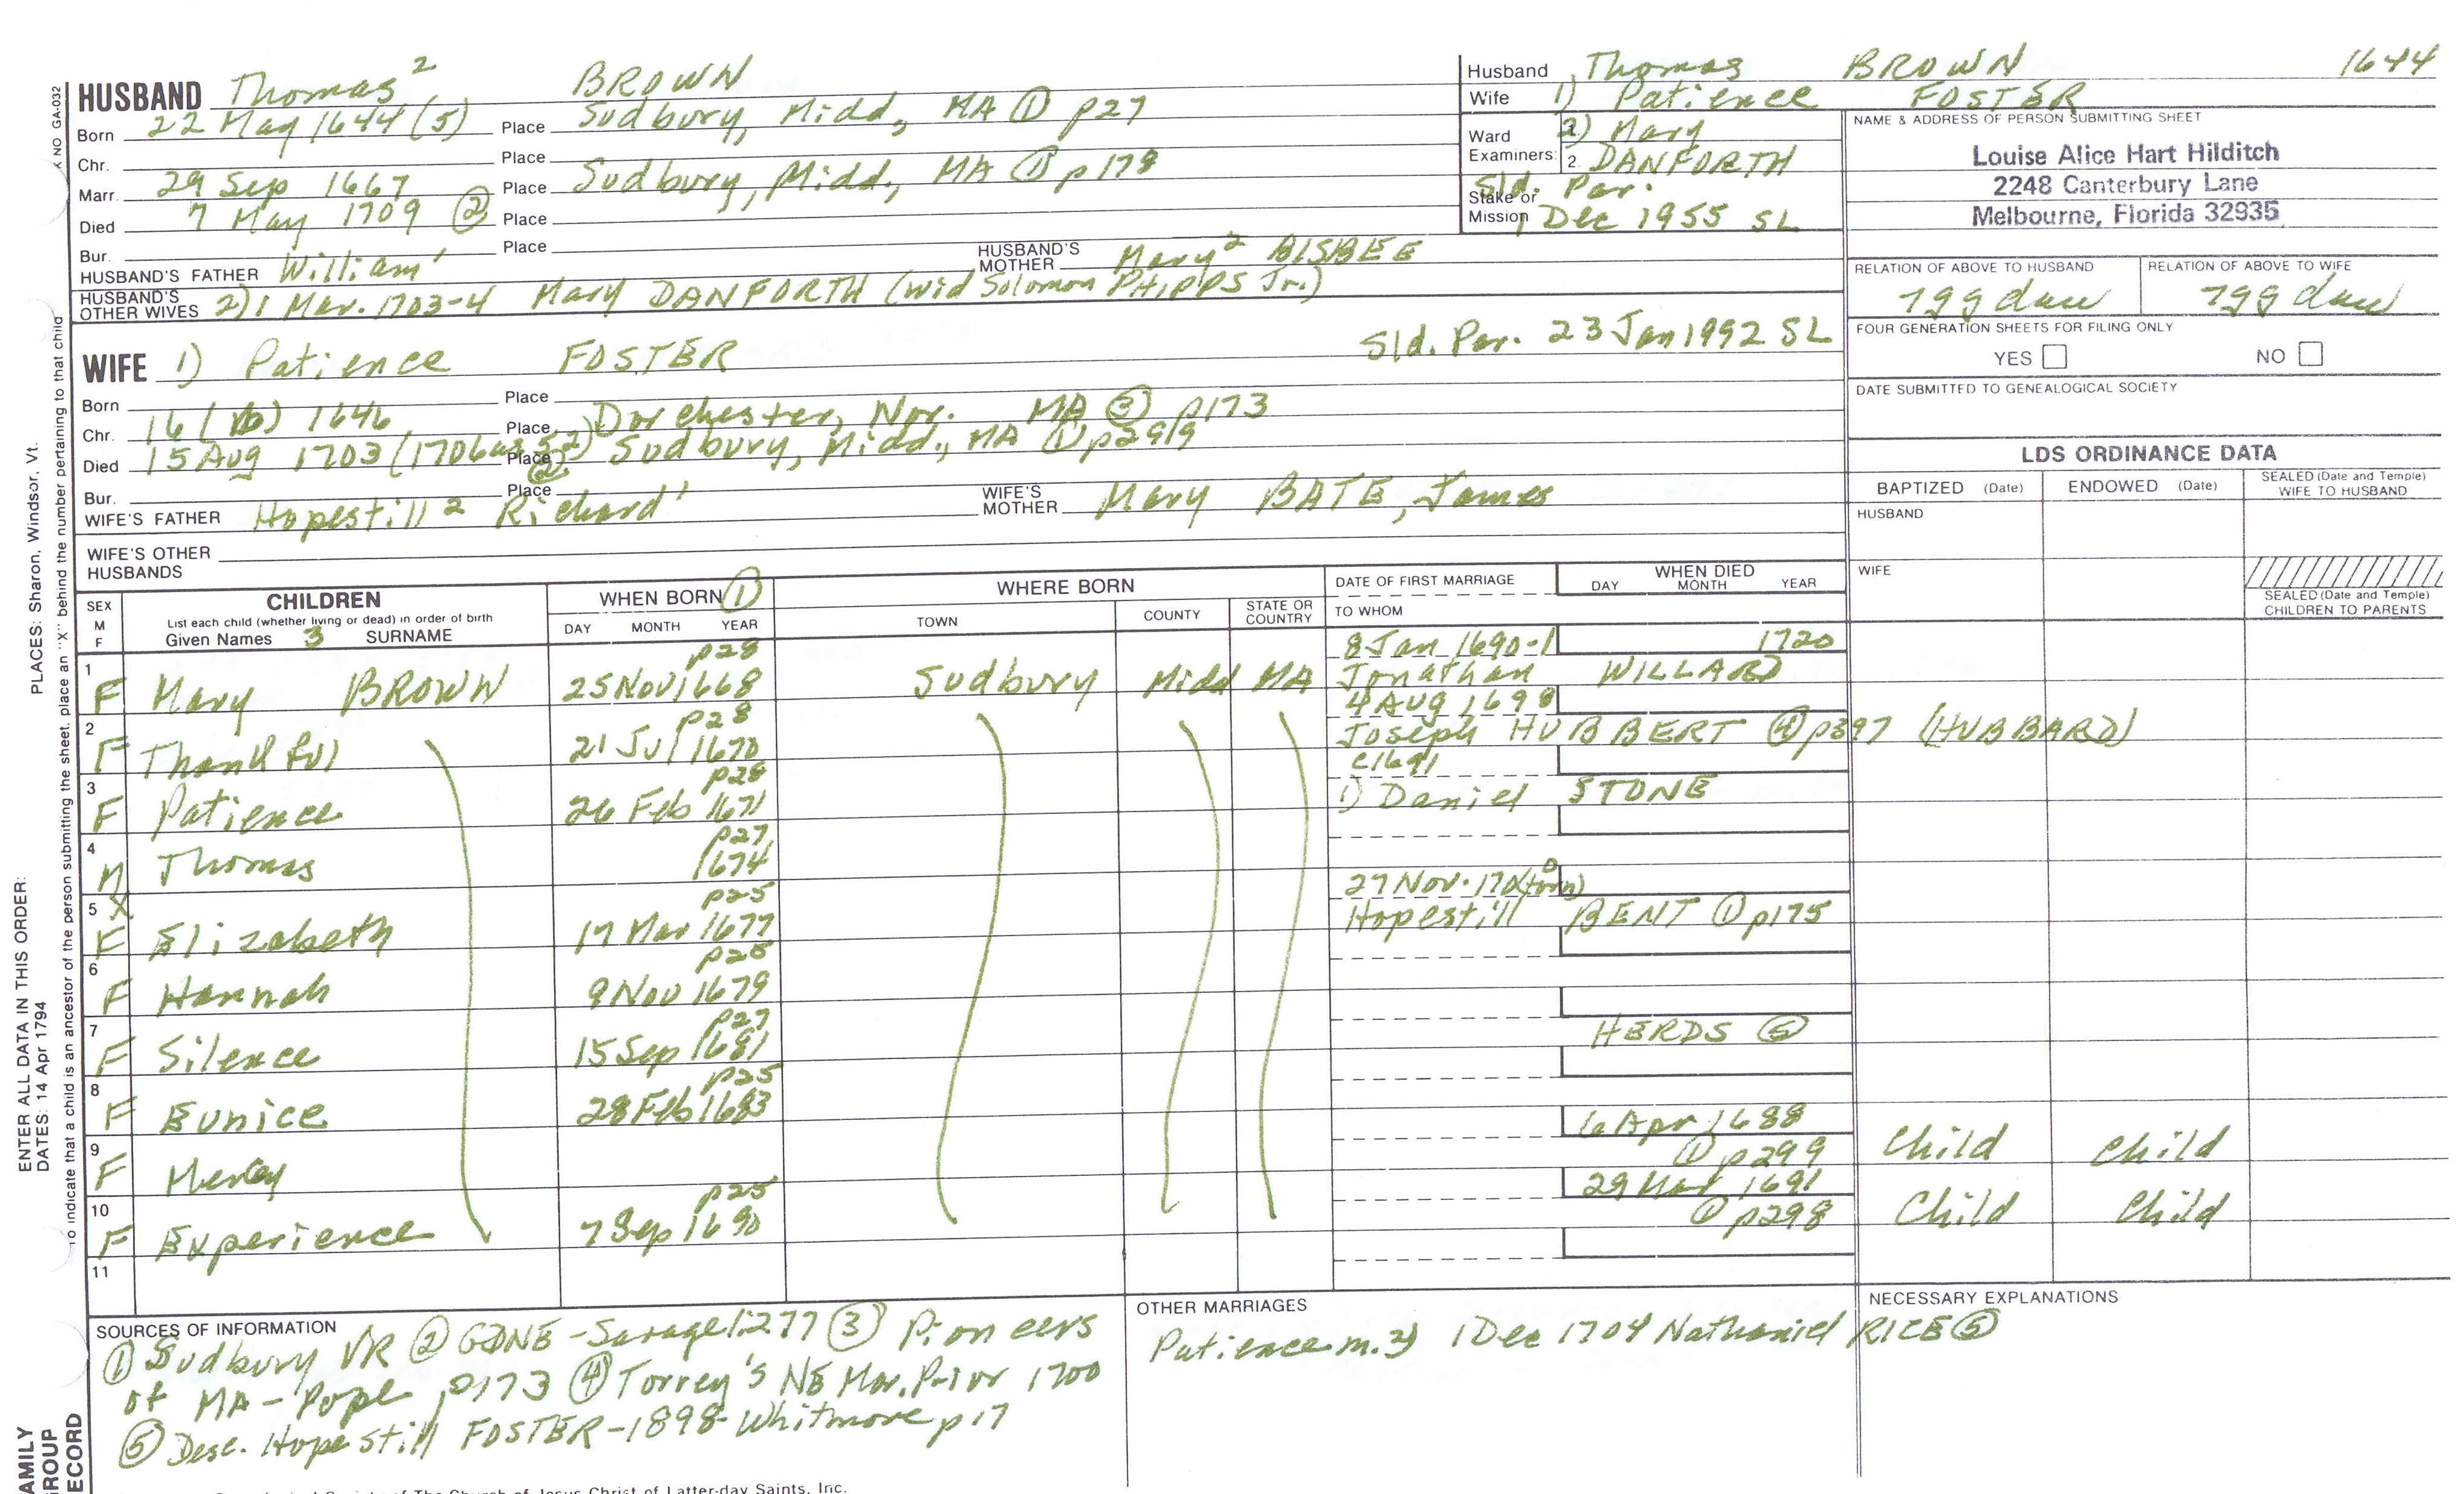 HUSBAND Thomas² BROWN
Born 22 May 1644 (5) Place Sudbury, Midd, MA ① p27
Chr. Place
Marr. 29 Sep 1667 Place Sudbury, Midd, MA ① p178
Died 7 May 1709 ② Place
Bur. Place
HUSBAND'S FATHER William¹ HUSBAND'S MOTHER Mary² BISBEE
HUSBAND'S OTHER WIVES 2) 1 Mar. 1703-4 Mary DANFORTH (wid Solomon PHIPPS Jr.)
Sld. Par. 23 Jan 1992 SL
WIFE 1) Patience FOSTER
Born Place
Chr. 16 ( ) 1646 Place Dorchester, Nor. MA ③ p173
Died 15 Aug 1703 (1706 ②) Place Sudbury, Midd., MA ① p299
Bur. Place
WIFE'S FATHER Hopestill² Richard¹ WIFE'S MOTHER Mary BATE, James
WIFE'S OTHER HUSBANDS
Husband Thomas BROWN 1644
Wife 1) Patience FOSTER
Ward 2) Mary
Examiners: 2. DANFORTH
Sld. Par.
Stake or Mission 1 Dec 1955 SL
NAME & ADDRESS OF PERSON SUBMITTING SHEET
Louise Alice Hart Hilditch
2248 Canterbury Lane
Melbourne, Florida 32935
RELATION OF ABOVE TO HUSBAND RELATION OF ABOVE TO WIFE
7gg dau 7gg dau
FOUR GENERATION SHEETS FOR FILING ONLY
YES NO
DATE SUBMITTED TO GENEALOGICAL SOCIETY
LDS ORDINANCE DATA
BAPTIZED (Date) ENDOWED (Date) SEALED (Date and Temple) WIFE TO HUSBAND
HUSBAND
WIFE
SEALED (Date and Temple) CHILDREN TO PARENTS
SEX M F
CHILDREN
List each child (whether living or dead) in order of birth
Given Names 3 SURNAME
WHEN BORN ①
DAY MONTH YEAR
WHERE BORN
TOWN COUNTY STATE OR COUNTRY
DATE OF FIRST MARRIAGE
TO WHOM
WHEN DIED
DAY MONTH YEAR
p28 8 Jan 1690-1 1720
1 F Mary BROWN 25 Nov 1668 Sudbury Midd MA Jonathan WILLARD
p28 4 Aug 1698
2 F Thankful 21 Jul 1670 Joseph HUBBERT ④ p397 (HUBBARD)
p28 c1691
3 F Patience 26 Feb 1671 1) Daniel STONE
p27
4 M Thomas 1674
p25 27 Nov. 170(torn)0
5 X F Elizabeth 17 Mar 1677 Hopestill BENT ① p175
p25
6 F Hannah 9 Nov 1679
p27
7 F Silence 15 Sep 1681 HERDS ⑤
p25
8 F Eunice 28 Feb 1683
6 Apr 1688
9 F Mercy ① p299 Child Child
p25 29 Mar 1691
10 F Experience 7 Sep 1690 ① p298 Child Child
11
SOURCES OF INFORMATION
① Sudbury VR ② GDNE - Savage 1:277 ③ Pioneers
of MA - Pope p173 ④ Torrey's NE Mar. Prior 1700
⑤ Desc. Hopestill FOSTER - 1898 - Whitmore p17
OTHER MARRIAGES
Patience m. 2) 1 Dec 1704 Nathaniel RICE ⑤
NECESSARY EXPLANATIONS
NO GA-032
PLACES: Sharon, Windsor, Vt.
ENTER ALL DATA IN THIS ORDER:
DATES: 14 Apr 1794
To indicate that a child is an ancestor of the person submitting the sheet, place an "X" behind the number pertaining to that child
AMILY
ROUP
ECORD
Society of The Church of Jesus Christ of Latter-day Saints, Inc.